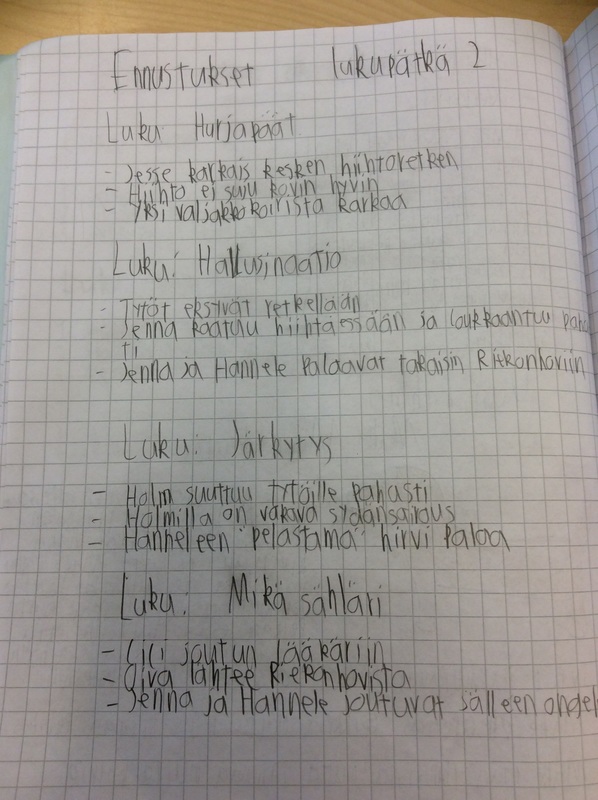 Ennustukset lukupätkä 2
Luku: Hurjapäät
- Jesse karkais kesken hiihtoretken
- Hiihto ei suju kovin hyvin
- Yksi valjakkokoirista karkaa
Luku: Hallusinaatio
- Tytöt eksyvät retkellään
- Jenna kaatuu hiihtäessään ja loukkaantuu paha
ti
- Jenna ja Hannele palaavat takaisin Riekonhoviin
Luku: Järkytys
- Holm suuttuu tytöille pahasti
- Holmilla on vakava sydänsairaus
- Hanneleen "pelastama" hirvi palaa
Luku: Mikä sähläri
- Cici joutun lääkäriin
- Oiva lähtee Riekonhovista
- Jenna ja Hannele joutuvat jälleen ongel